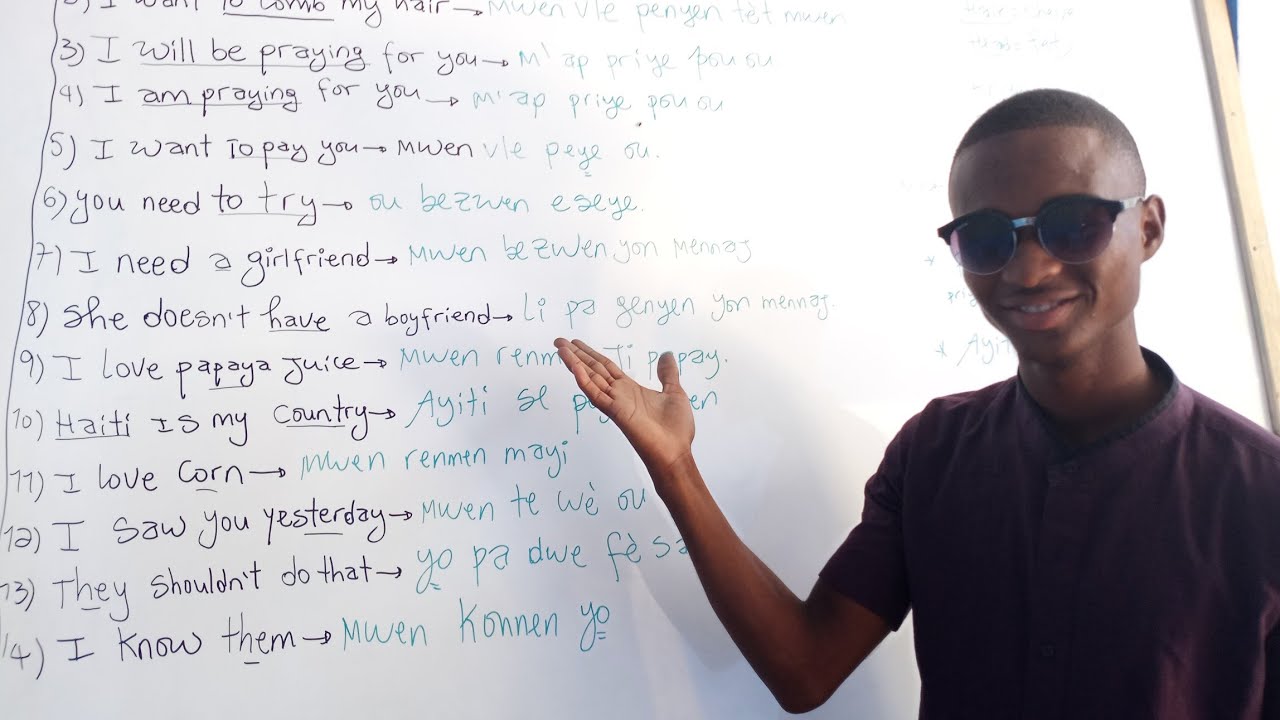 I want to comb my hair → Mwen vle penyen tèt mwen
3) I will be praying for you → M'ap priye pou ou
4) I am praying for you → M'ap priye pou ou
5) I want to pay you → Mwen vle peye ou.
6) you need to try → ou bezwen eseye.
7) I need a girlfriend → Mwen bezwen yon mennaj
8) She doesn't have a boyfriend → Li pa genyen yon mennaj.
9) I love papaya juice → Mwen renmen ji papay.
10) Haiti is my country → Ayiti se
11) I love corn → Mwen renmen mayi
12) I saw you yesterday → Mwen te wè ou
13) They shouldn't do that → yo pa dwe fè sa
14) I know them → Mwen konnen yo